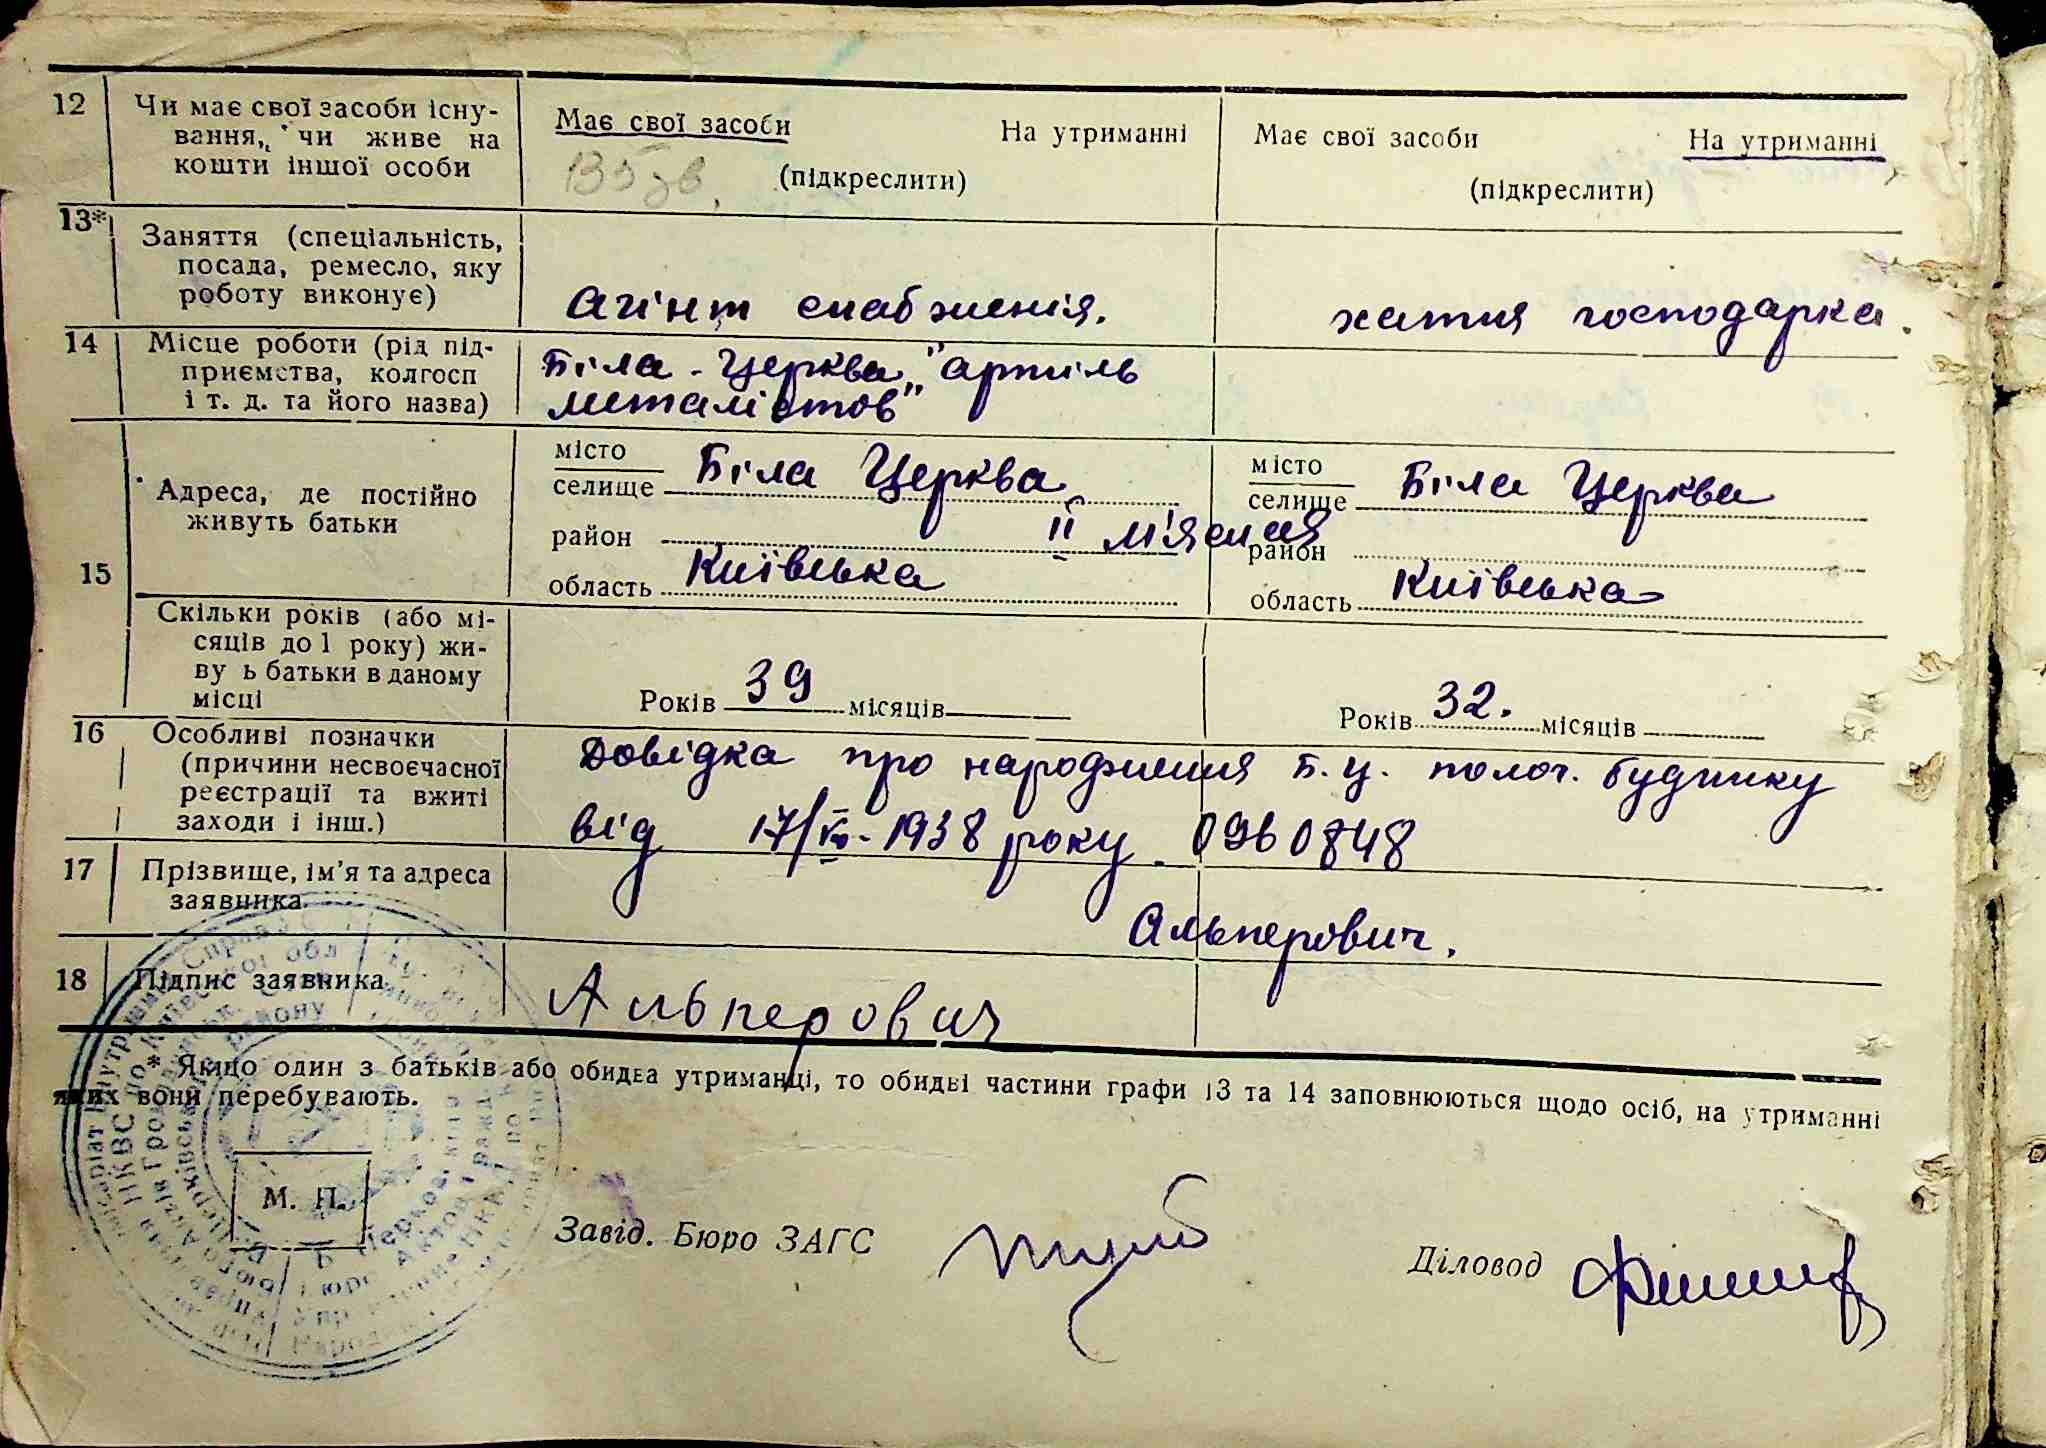 12 Чи має свої засоби існу-
вання, чи живе на
кошти іншої особи
Має свої засоби На утриманні
(підкреслити)
Має свої засоби На утриманні
(підкреслити)
13* Заняття (спеціальність,
посада, ремесло, яку
роботу виконує)
Агінт снабженія.
хатня господарка.
14 Місце роботи (рід під-
приємства, колгосп
і т. д. та його назва)
Біла-Церква, "артіль
металістов"
15 Адреса, де постійно
живуть батьки
місто
селище Біла Церква
район II М'ясная
область Київська
місто
селище Біла Церква
район
область Київська
Скільки років (або мі-
сяців до 1 року) жи-
ву ь батьки в даному
місці
Років 39 місяців
Років 32. місяців
16 Особливі позначки
(причини несвоєчасної
реєстрації та вжиті
заходи і інш.)
Довідка про народження Б.Ц. полог. будинку
від 17/ - 1938 року. 0960848
17 Прізвище, ім'я та адреса
заявника
Альперович.
18 Підпис заявника
Альперович
* Якщо один з батьків або обидва утриманці, то обидві частини графи 13 та 14 заповнюються щодо осіб, на утриманні
яких вони перебувають.
М. П.
Завід. Бюро ЗАГС
Діловод